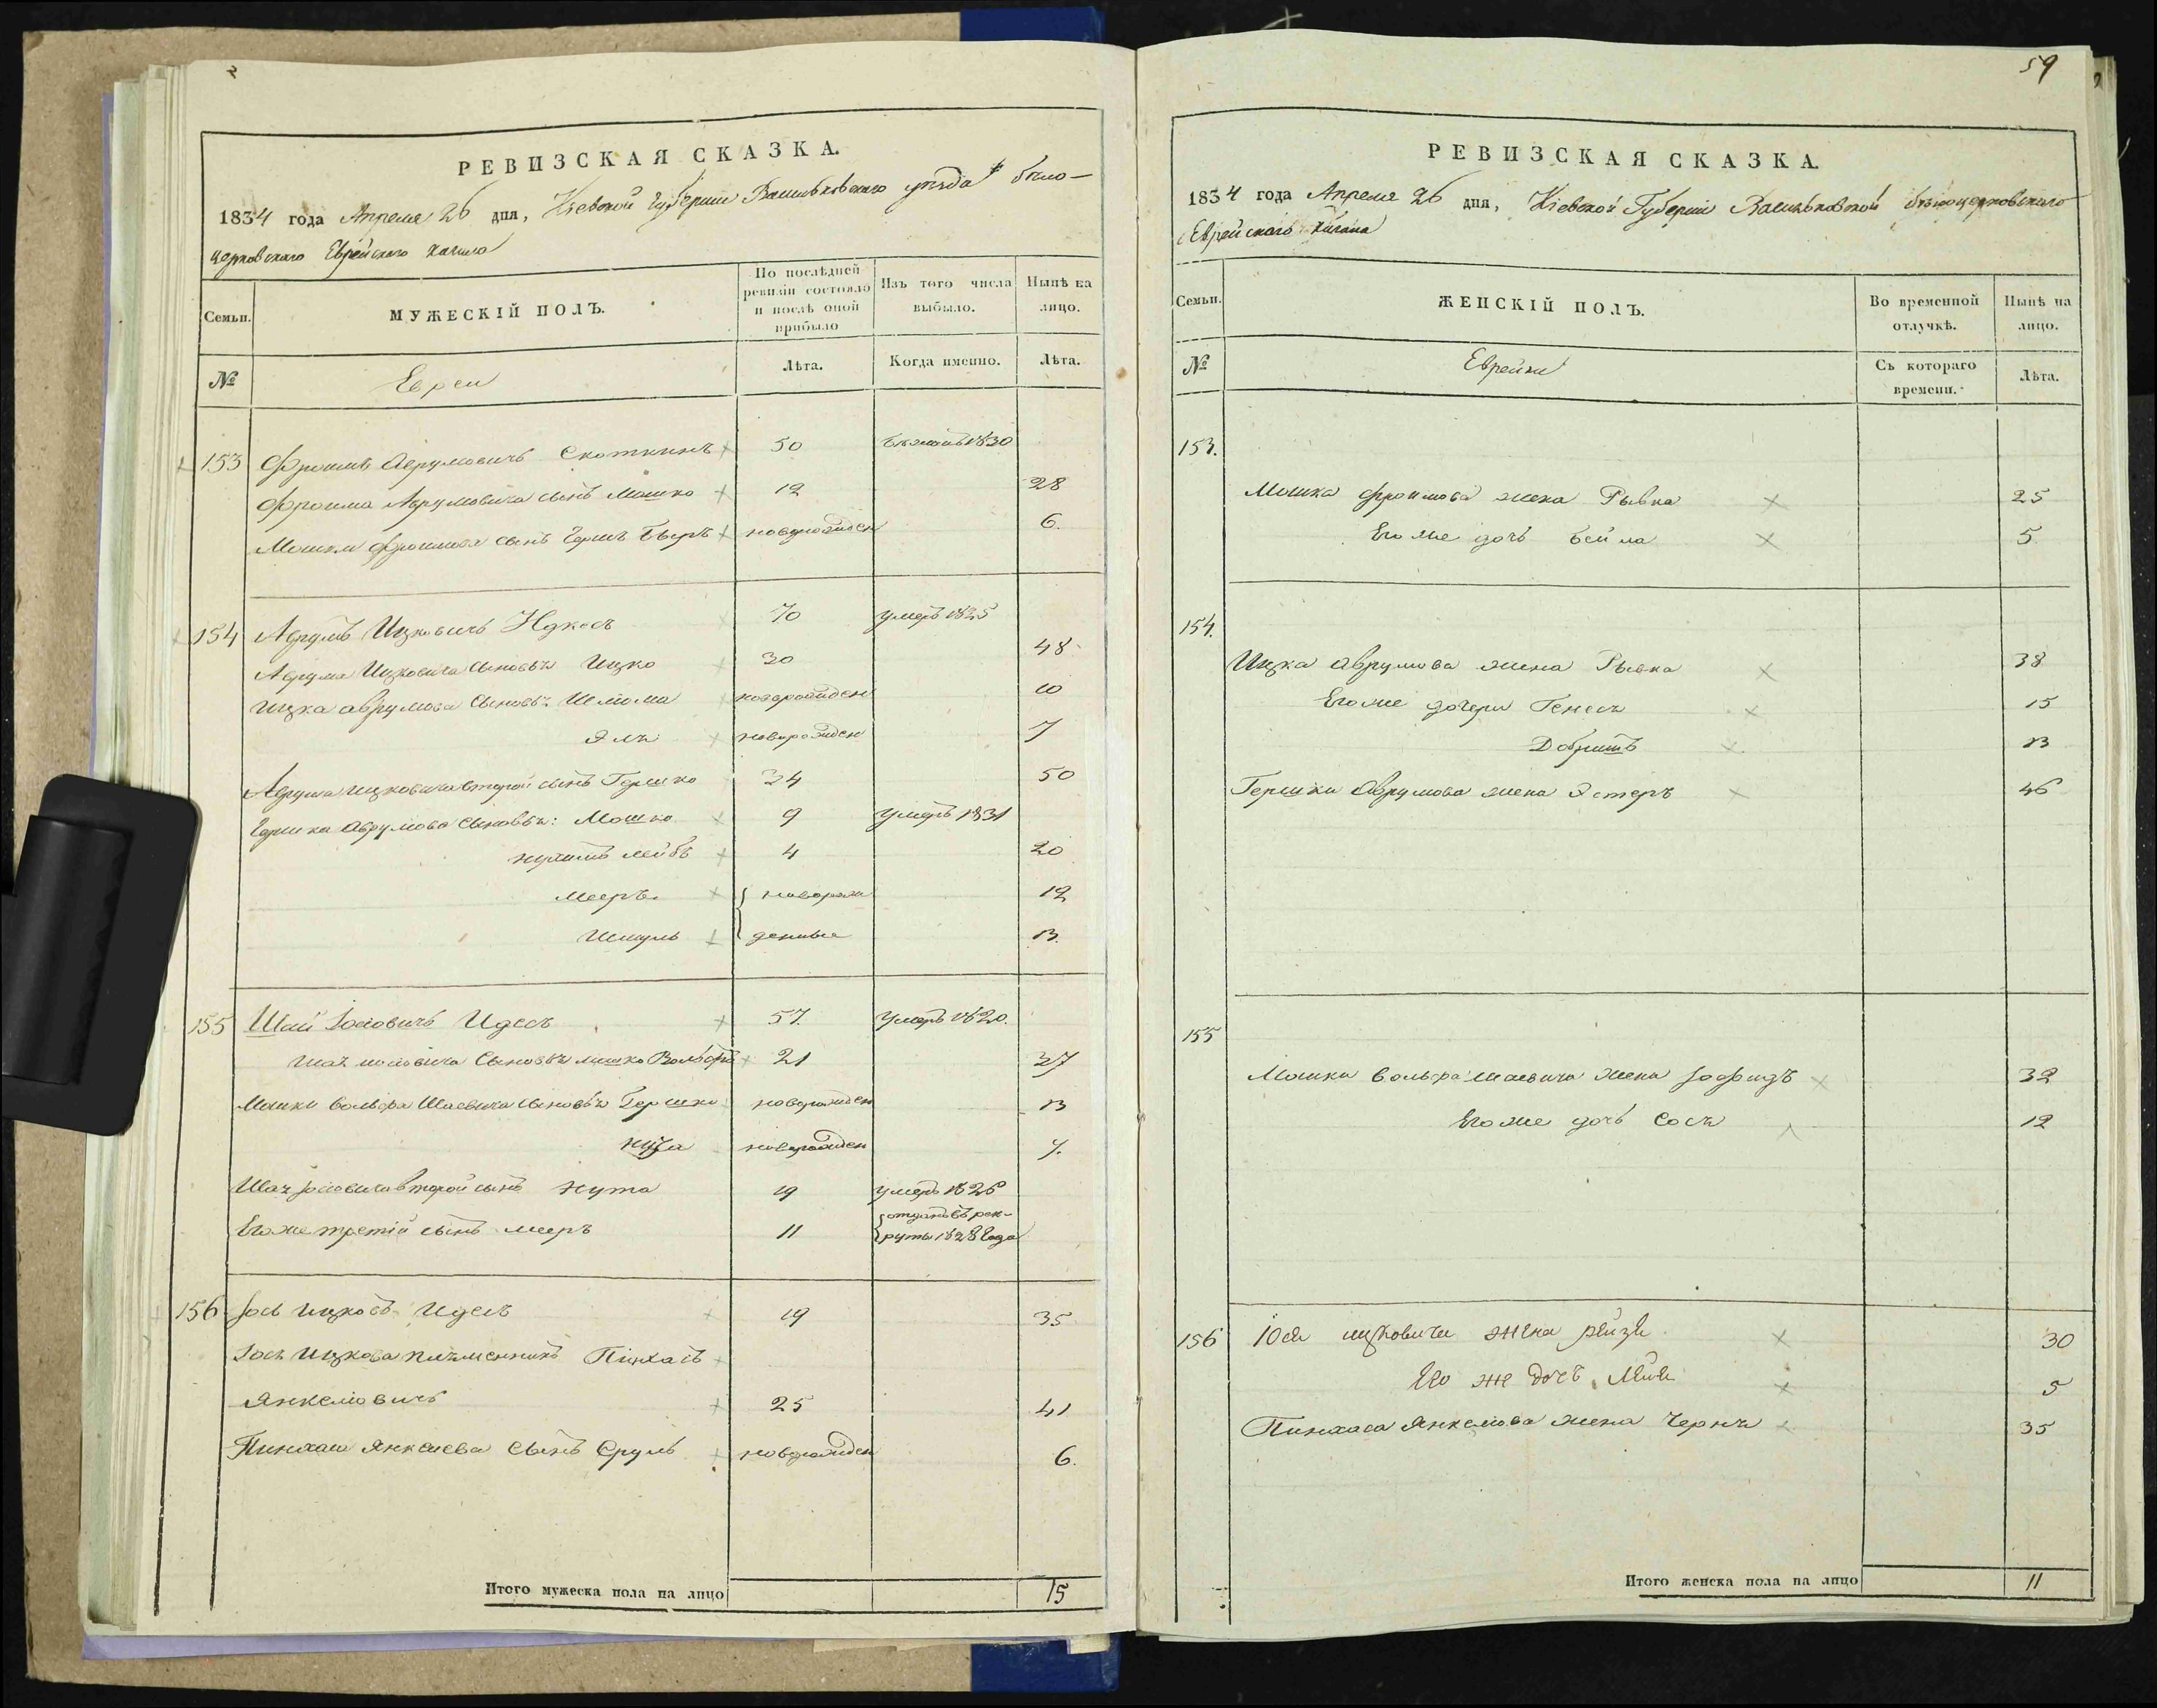 РЕВИЗСКАЯ СКАЗКА.
1834 года Апреля 26 дня, Кіевской Губерніи Васильковскаго уѣзда бѣло-
церковскаго Еврейскаго кагала
Семьи. МУЖЕСКІЙ ПОЛЪ. По послѣдней ревизіи состояло и послѣ оной прибыло Изъ того числа выбыло. Нынѣ на лицо.
№ Евреи Лѣта. Когда именно. Лѣта.
153 Фроимъ Аврумовичъ Скоткинъ 50 1830
Фроима Аврумовича сынъ Мошко 12 28
Мошки Фроимова сынъ Герш Беръ новорожден 6.
154 Аврумъ Ицковичъ 70 умеръ 1825
Аврума Ицковича сыновья Ицко 30 48
Ицка аврумова сыновья Шлиома новорожден 10
Эля новорожден 7
Аврума Ицковича второй сынъ Гершко 34 50
Гершка Аврумова сыновья: Мошко 9 умеръ 1831
нухимъ лейбъ 4 20
Мееръ новорож 12
Шмуль денные 13.
155 Шай Іосіовичъ Идесъ 57. умеръ 1820.
сыновья мошко Вольфъ 21 37
Мошки Вольфа Шаевича сыновья Гершко новорожден 13
нута новорожден 7.
второй сынъ нута 19 умеръ 1826
Его же третій сынъ мееръ 11 отданъ въ рек-
руты 1828 года
156 Іось Ицковъ Идесъ 19 35
Іося Ицкова племенникъ Пинхасъ
Янкелювичъ 25 41
Пинхаса Янкелева сынъ Сруль новорожден 6.
Итого мужеска пола на лицо 15
59
РЕВИЗСКАЯ СКАЗКА
1834 года Апреля 26 дня, Кіевской Губерніи Васильковской бѣлоцерковскаго
Еврейскаго Кагала
Семьи. ЖЕНСКІЙ ПОЛЪ. Во временной отлучкѣ. Нынѣ на лицо.
№ Еврейки Съ котораго времени. Лѣта.
153.
Мошка Фроимова жена Рывка 25
Его же дочь Бейла 5
154.
Ицка аврумова жена Рывка 38
Его же дочери Генеся 15
Добришъ 13
Гершки Аврумова жена Эстеръ 46
155
Мошки Вольфа Шаевича жена 32
Его же дочь Сося 12
156 Іося ицковича жена рейзя 30
Его же дочь 5
Пинхаса Янкелова жена Черня 35
Итого женска пола на лицо 11